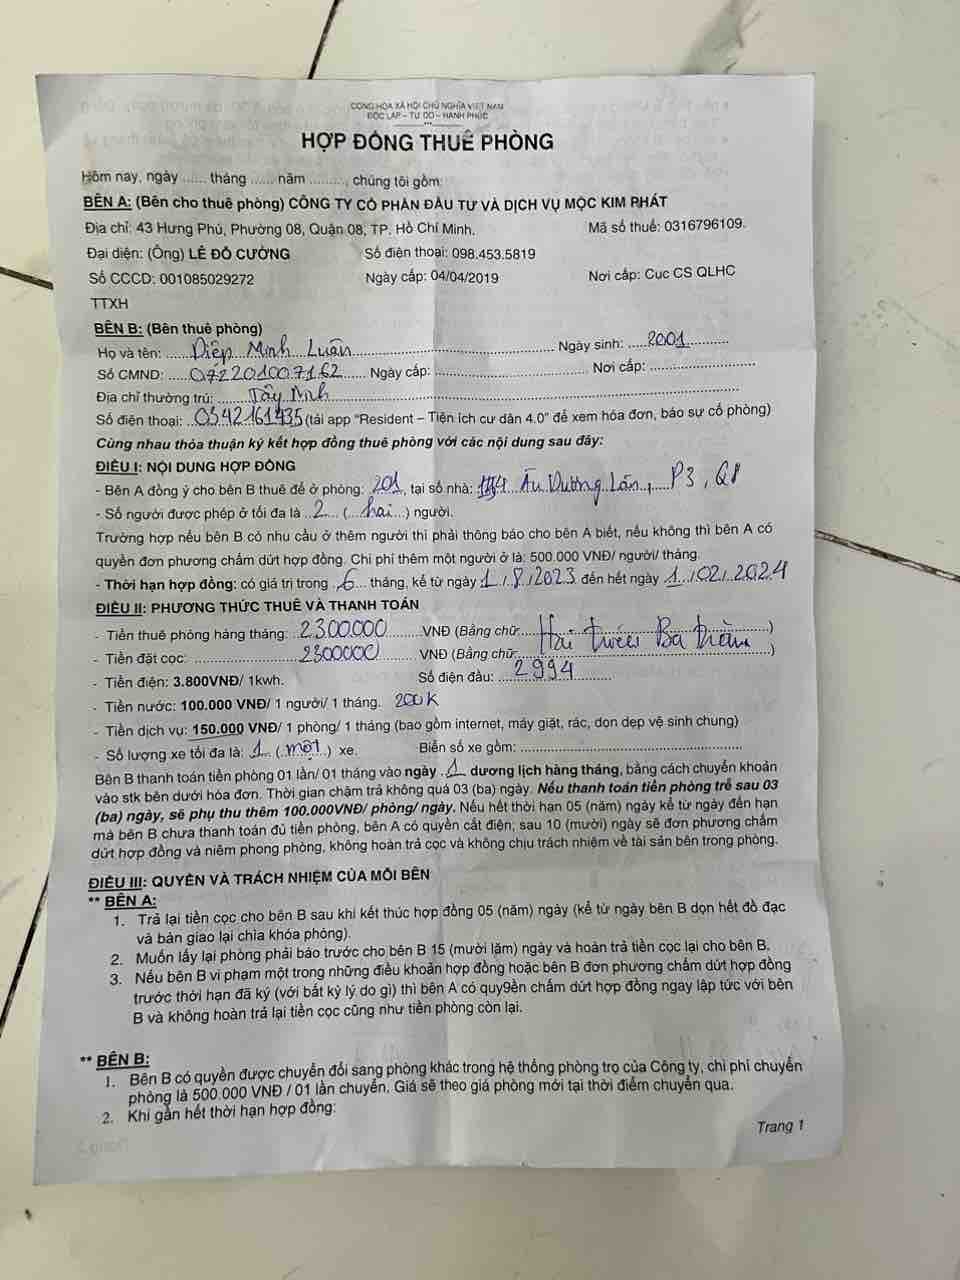 CỘNG HÒA XÃ HỘI CHỦ NGHĨA VIỆT NAM
ĐỘC LẬP – TỰ DO – HẠNH PHÚC
HỢP ĐỒNG THUÊ PHÒNG
Hôm nay, ngày ...... tháng ...... năm ........., chúng tôi gồm:
BÊN A: (Bên cho thuê phòng) CÔNG TY CỔ PHẦN ĐẦU TƯ VÀ DỊCH VỤ MỘC KIM PHÁT
Địa chỉ: 43 Hưng Phú, Phường 08, Quận 08, TP. Hồ Chí Minh. Mã số thuế: 0316796109.
Đại diện: (Ông) LÊ ĐỖ CƯỜNG Số điện thoại: 098.453.5819
Số CCCD: 001085029272 Ngày cấp: 04/04/2019 Nơi cấp: Cục CS QLHC
TTXH
BÊN B: (Bên thuê phòng)
Họ và tên: Diệp Minh Luân Ngày sinh: 2001
Số CMND: 072201007162 Ngày cấp: Nơi cấp:
Địa chỉ thường trú: Tây Ninh
Số điện thoại: (tải app "Resident – Tiện ích cư dân 4.0" để xem hóa đơn, báo sự cố phòng)
Cùng nhau thỏa thuận ký kết hợp đồng thuê phòng với các nội dung sau đây:
ĐIỀU I: NỘI DUNG HỢP ĐỒNG
- Bên A đồng ý cho bên B thuê để ở phòng: 201, tại số nhà: Âu Dương Lân, P3, Q8
- Số người được phép ở tối đa là 2 (hai) người.
Trường hợp nếu bên B có nhu cầu ở thêm người thì phải thông báo cho bên A biết, nếu không thì bên A có
quyền đơn phương chấm dứt hợp đồng. Chi phí thêm một người ở là: 500.000 VNĐ/ người/ tháng.
- Thời hạn hợp đồng: có giá trị trong 6 tháng, kể từ ngày 1/8/2023 đến hết ngày 1/02/2024
ĐIỀU II: PHƯƠNG THỨC THUÊ VÀ THANH TOÁN
- Tiền thuê phòng hàng tháng: 2300000 VNĐ (Bằng chữ: Hai triệu Ba trăm)
- Tiền đặt cọc: 2300000 VNĐ (Bằng chữ: )
- Tiền điện: 3.800VNĐ/ 1kwh. Số điện đầu: 2994
- Tiền nước: 100.000 VNĐ/ 1 người/ 1 tháng. 200K
- Tiền dịch vụ: 150.000 VNĐ/ 1 phòng/ 1 tháng (bao gồm internet, máy giặt, rác, dọn dẹp vệ sinh chung)
- Số lượng xe tối đa là: 1 (một) xe. Biển số xe gồm:
Bên B thanh toán tiền phòng 01 lần/ 01 tháng vào ngày 1 dương lịch hàng tháng, bằng cách chuyển khoản
vào stk bên dưới hóa đơn. Thời gian chậm trả không quá 03 (ba) ngày. Nếu thanh toán tiền phòng trễ sau 03
(ba) ngày, sẽ phụ thu thêm 100.000VNĐ/ phòng/ ngày. Nếu hết thời hạn 05 (năm) ngày kể từ ngày đến hạn
mà bên B chưa thanh toán đủ tiền phòng, bên A có quyền cắt điện; sau 10 (mười) ngày sẽ đơn phương chấm
dứt hợp đồng và niêm phong phòng, không hoàn trả cọc và không chịu trách nhiệm về tài sản bên trong phòng.
ĐIỀU III: QUYỀN VÀ TRÁCH NHIỆM CỦA MỖI BÊN
** BÊN A:
1. Trả lại tiền cọc cho bên B sau khi kết thúc hợp đồng 05 (năm) ngày (kể từ ngày bên B dọn hết đồ đạc
và bàn giao lại chìa khóa phòng).
2. Muốn lấy lại phòng phải báo trước cho bên B 15 (mười lăm) ngày và hoàn trả tiền cọc lại cho bên B.
3. Nếu bên B vi phạm một trong những điều khoản hợp đồng hoặc bên B đơn phương chấm dứt hợp đồng
trước thời hạn đã ký (với bất kỳ lý do gì) thì bên A có quy9ền chấm dứt hợp đồng ngay lập tức với bên
B và không hoàn trả lại tiền cọc cũng như tiền phòng còn lại.
** BÊN B:
1. Bên B có quyền được chuyển đổi sang phòng khác trong hệ thống phòng trọ của Công ty, chi phí chuyển
phòng là 500.000 VNĐ / 01 lần chuyển. Giá sẽ theo giá phòng mới tại thời điểm chuyển qua.
2. Khi gần hết thời hạn hợp đồng:
Trang 1